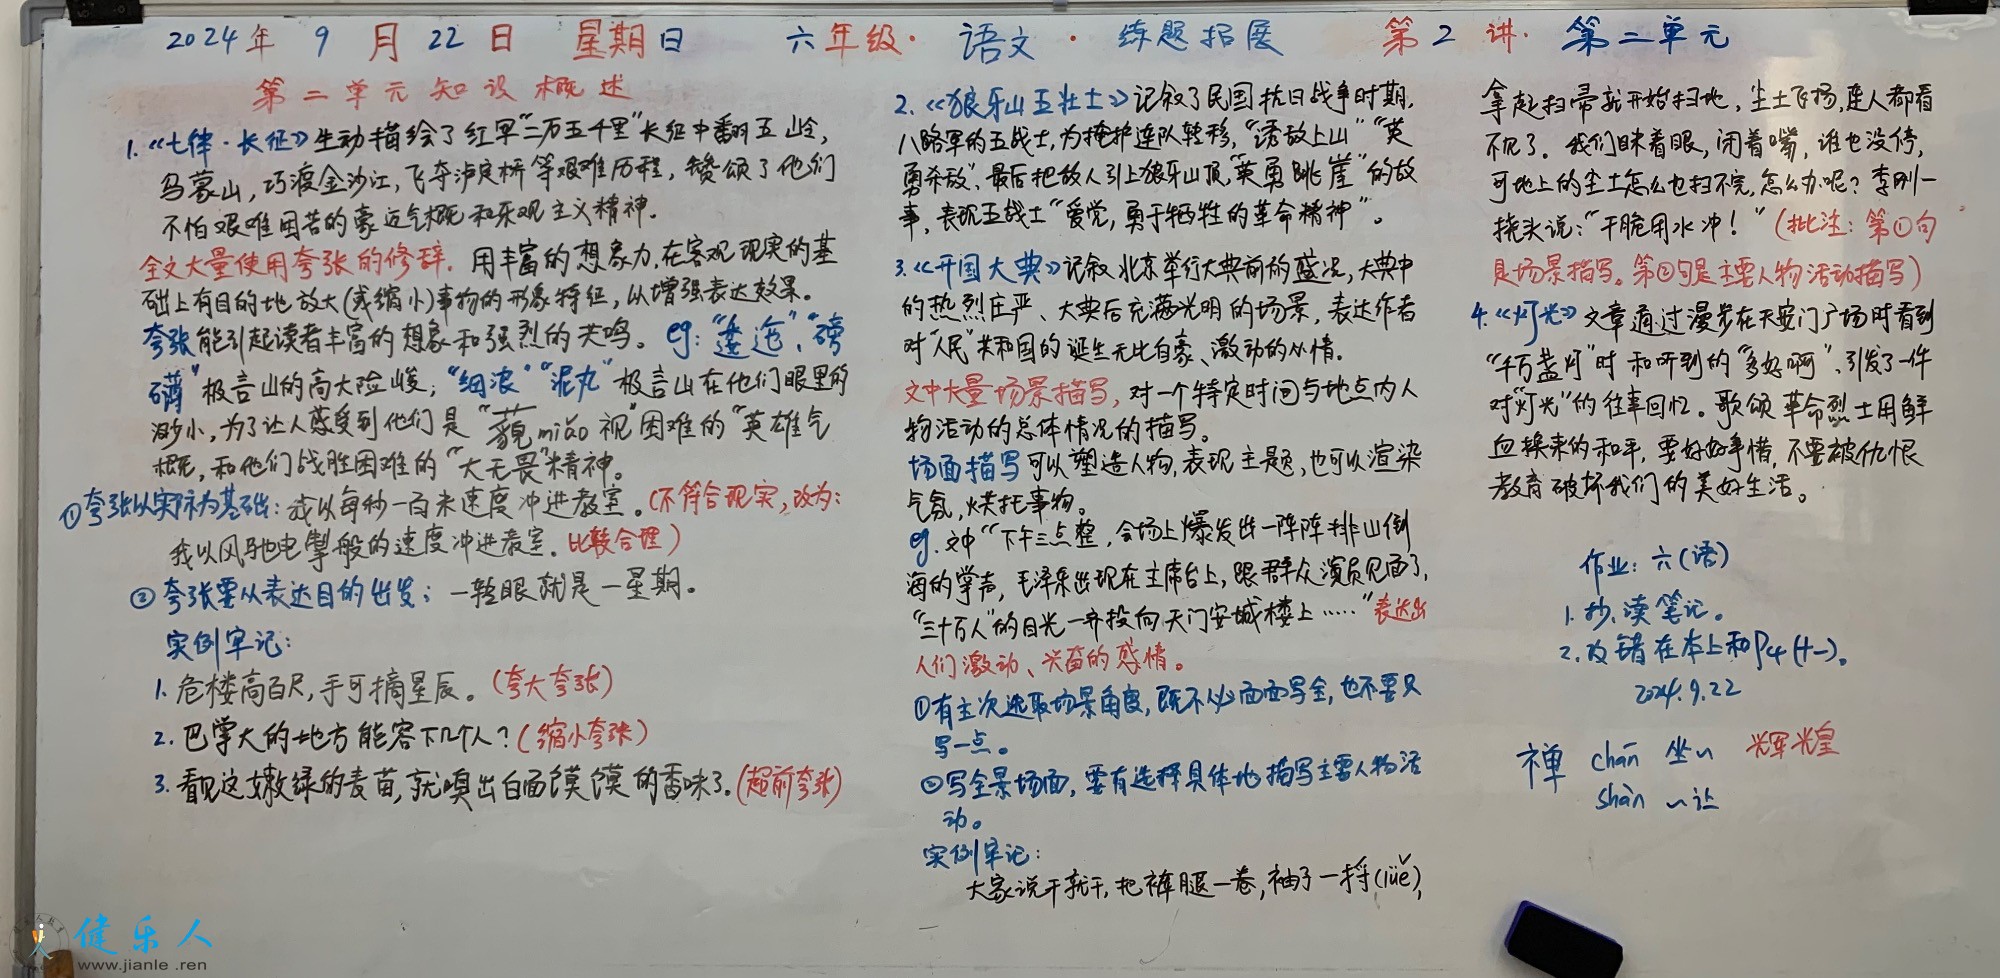 2024年 9 月 22 日 星期日 六年级·语文·练题拓展 第2讲·第二单元
第二单元知设概述
1.《七律·长征》生动描绘了红军“二万五千里”长征中翻五岭,
乌蒙山,巧渡金沙江,飞夺泸定桥等艰难历程,赞颂了他们
不怕艰难困苦的豪迈气概和乐观主义精神.
全文大量使用夸张的修辞.用丰富的想象力,在客观现实的基
础上有目的地放大(或缩小)事物的形象特征,从增强表达效果。
夸张能引起读者丰富的想象和强烈的共鸣。eg:“逶迤”,“磅
礴”极言山的高大险峻;“细浪”“泥丸”极言山在他们眼里的
渺小,为了让人感受到他们是“藐miǎo视”困难的“英雄气
概,和他们战胜困难的“大无畏”精神。
①夸张以实际为基础:我以每秒一百米速度冲进教室。(不符合现实,改为:
我以风驰电掣般的速度冲进教室.比较合理)
②夸张要从表达目的出发;一转眼就是一星期。
实例牢记:
1.危楼高百尺,手可摘星辰。(夸大夸张)
2.巴掌大的地方能容下几个人?(缩小夸张)
3.看见这嫩绿的麦苗,就嗅出白面馍馍的香味了.(超前夸张)
2.《狼牙山五壮士》记叙了民国抗日战争时期,
八路军的五战士,为掩护连队转移,“诱敌上山”“英
勇杀敌”,最后把敌人引上狼牙山顶,“英勇跳崖”的故
事,表现五战士“爱党,勇于牺牲的革命精神”。
3.《开国大典》记叙北京举行大典前的盛况,大典中
的热烈庄严、大典后充满光明的场景,表达作者
对“人民”共和国的诞生无比自豪、激动的心情.
文中大量场景描写,对一个特定时间与地点内人
物活动的总体情况的描写。
场面描写可以塑造人物,表现主题,也可以渲染
气氛,烘托事物。
eg.文中“下午三点整,会场上爆发出一阵阵排山倒
海的掌声,毛泽东出现在主席台上,跟群众演员见面了,
“三十万人”的目光一齐投向天门安城楼上……”表达出
人们激动、兴奋的感情。
①有主次选取场景角度,既不必面面写全,也不要只
写一点。
②写全景场面,要有选择具体地描写主要人物活
动。
实例牢记:
大家说干就干,把裤腿一卷,袖子一捋(lüě),
拿起扫帚就开始扫地,尘土飞扬,连人都看
不见了.我们眯着眼,闭着嘴,谁也没停,
可地上的尘土怎么也扫不完,怎么办呢?李刚一
挠头说:“干脆用水冲!”(批注:第①句
是场景描写。第②句是主要人物活动描写)
4.《灯光》文章通过漫步在天安门广场时看到
“千万盏灯”时和听到的“多好啊”,引发了一件
对“灯光”的往事回忆。歌颂革命烈士用鲜
血换来的和平,要好好事惜,不要被仇恨
教育破坏我们的美好生活。
作业:六(语)
1.抄、读笔记。
2.改错在本上和P4(十一)。
2024.9.22
禅 chán 坐~ 辉煌
shàn ~让
健乐人
www.jianle.ren